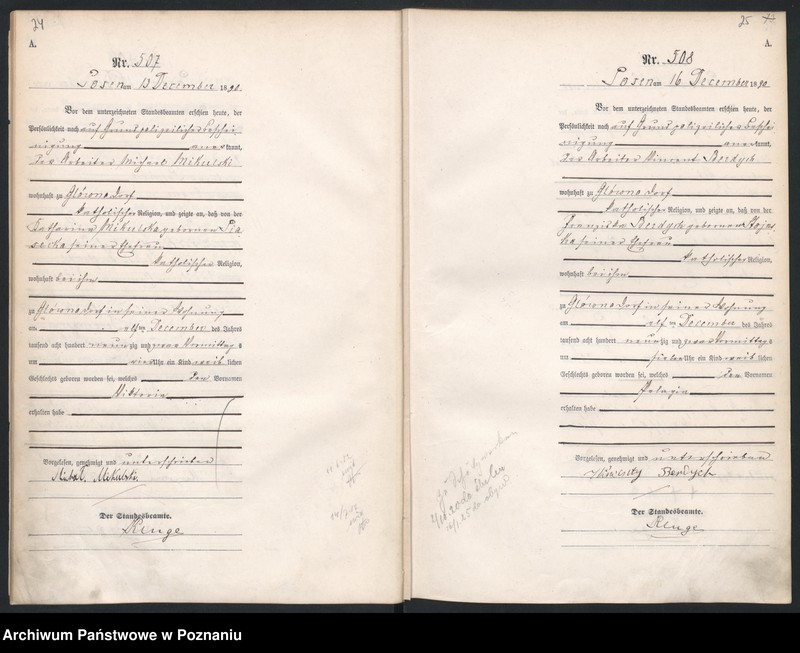 24
A.
Nr. 507
Posen am 15 December 1890.
Vor dem unterzeichneten Standesbeamten erschien heute, der
Persönlichkeit nach auf Grund polizeilicher Beschei
nigung anerkannt,
der Arbeiter Michael Mikulski
wohnhaft zu Glówno Dorf
katholischer Religion, und zeigte an, daß von der
Katharina Mikulska geborenen Pia
secka seiner Ehefrau
katholischer Religion,
wohnhaft bei ihm
zu Glówno Dorf in seiner Wohnung
am elften December des Jahres
tausend acht hundert neunzig und Vormittags
um Uhr ein Kind weiblichen
Geschlechts geboren worden sei, welches den Vornamen
Viktoria
erhalten habe
Vorgelesen, genehmigt und unterschrieben
Michał Mikulski
Der Standesbeamte.
Kluge
25
A.
Nr. 508
Posen am 16 December 1890
Vor dem unterzeichneten Standesbeamten erschien heute, der
Persönlichkeit nach auf Grund polizeilicher Beschei
nigung anerkannt,
der Arbeiter Vincent Berdych
wohnhaft zu Glówno Dorf
katholischer Religion, und zeigte an, daß von der
Franziska Berdych geborenen
seiner Ehefrau
katholischer Religion,
wohnhaft bei ihm
zu Glówno Dorf in seiner Wohnung
am elften December des Jahres
tausend acht hundert neunzig und Vormittags
um sieben Uhr ein Kind weiblichen
Geschlechts geboren worden sei, welches den Vornamen
Pelagia
erhalten habe
Vorgelesen, genehmigt und unterschrieben
Berdych
Der Standesbeamte.
Kluge
Archiwum Państwowe w Poznaniu